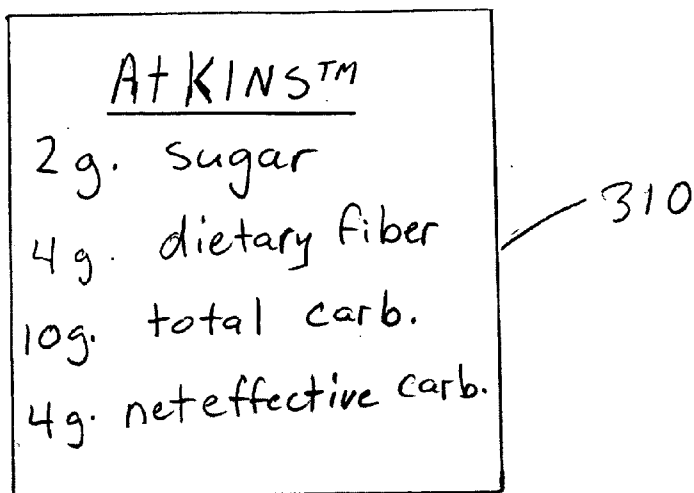 AtKINS™
2g. sugar
4g. dietary fiber
10g. total carb.
4g. net effective carb.
310